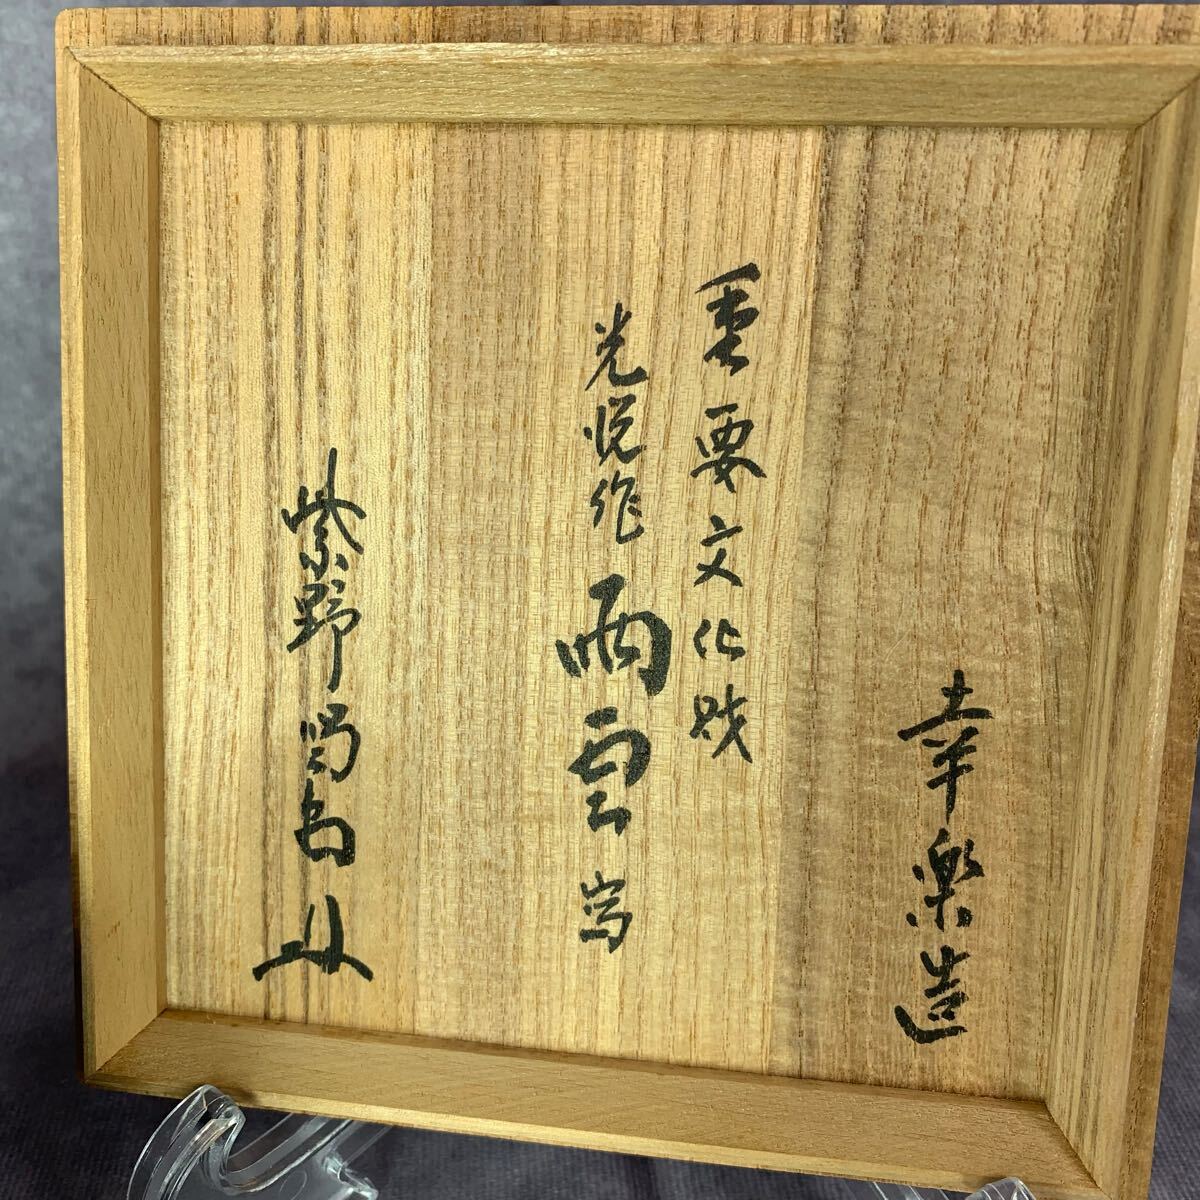 幸楽造
重要文化財
光悦作 雨雲写
紫野